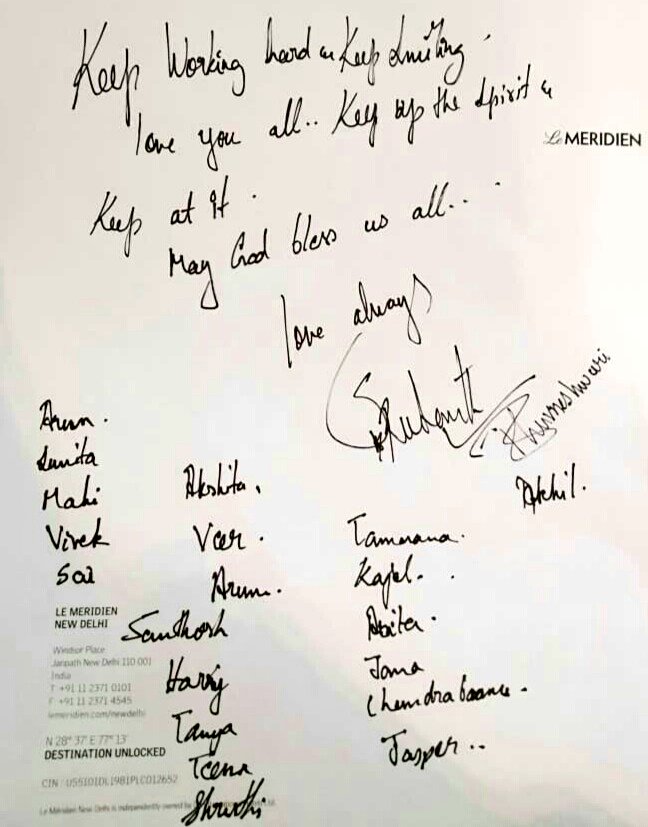 Keep Working hard n Keep Smiling.
love you all.. Keep up the spirit n
Le MERIDIEN
Keep at it.
May God bless us all...
love always
Arun.
Sunita
Mahi
Vivek
Sai
Akshita,
Veer.
Arun.
Santhosh
Harry
Tanya
Teena
Shruthi
Akhil.
Tamanana.
Kajal..
Joma
Jasper..
LE MERIDIEN
NEW DELHI
Windsor Place
Janpath New Delhi 110 001
India
T +91 11 2371 0101
F +91 11 2371 4545
lemeridien.com/newdelhi
N 28° 37' E 77° 13'
DESTINATION UNLOCKED
CIN : U55101DL1981PLC012652
Le Méridien New Delhi is independently owned by